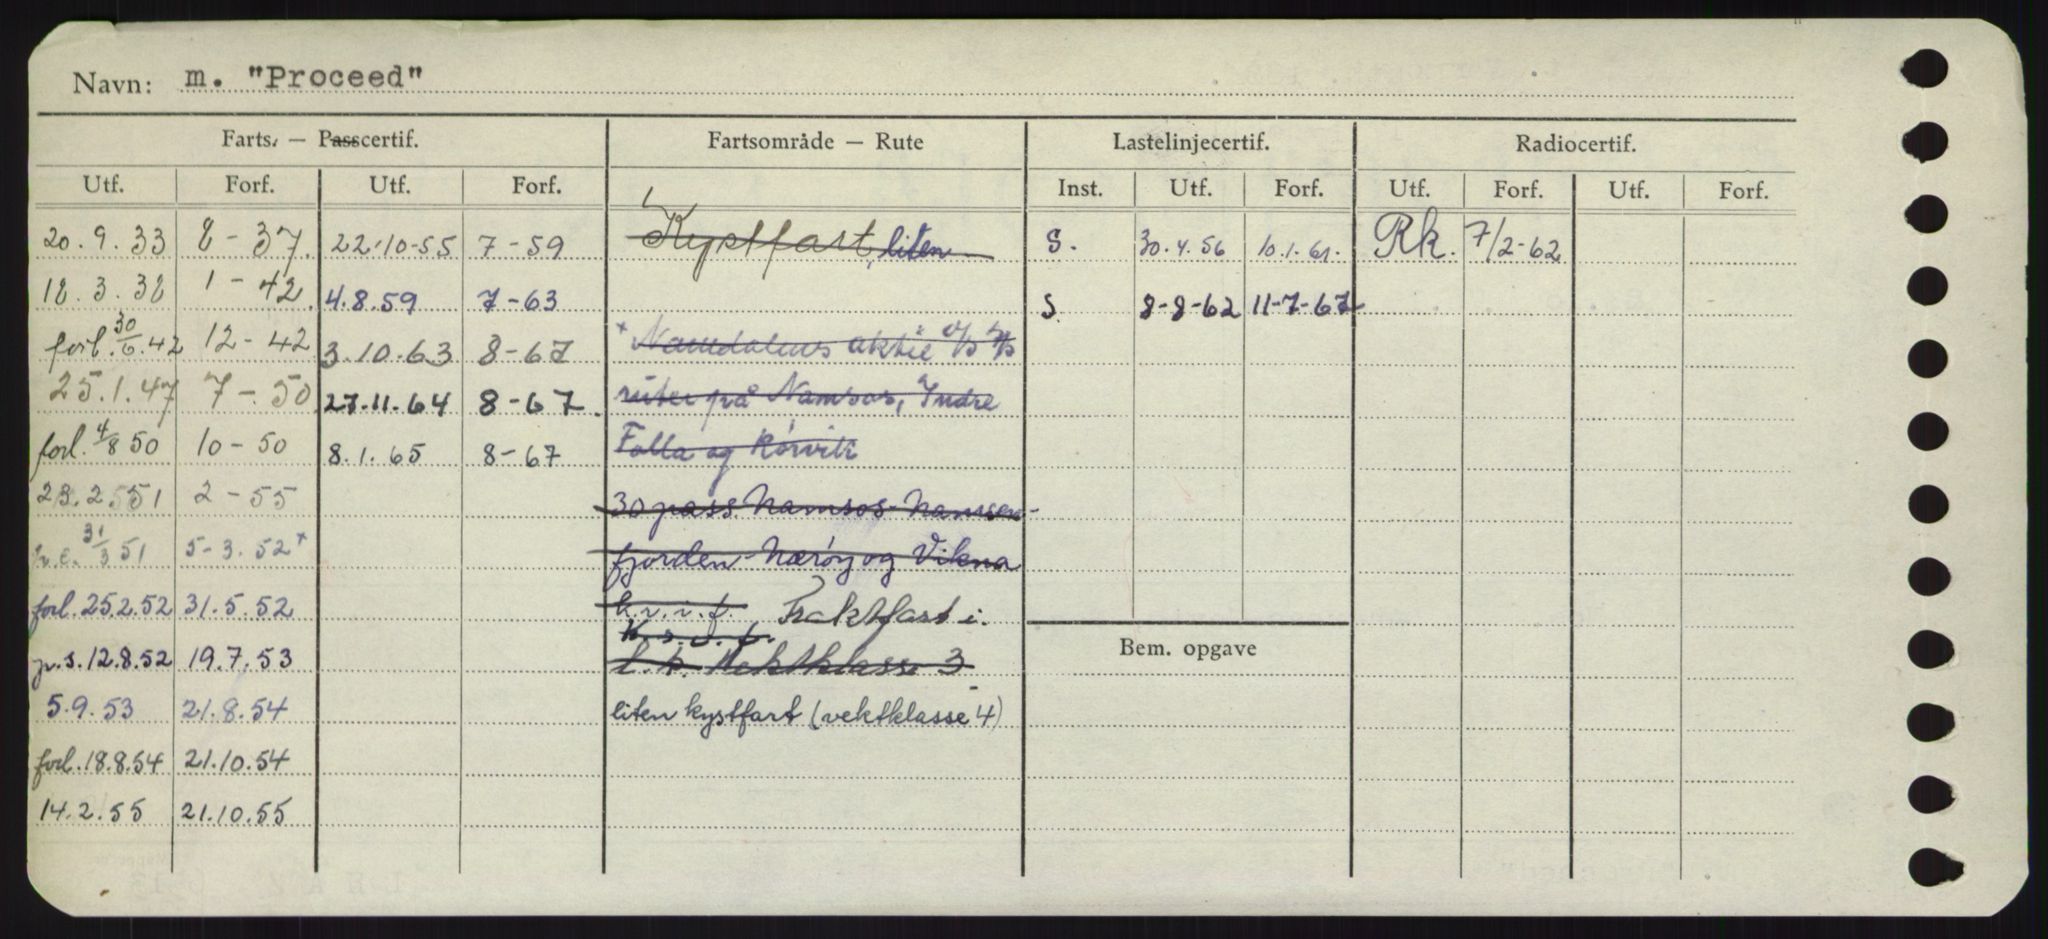 Navn: m. "Proceed"
Farts. — Passcertif. Fartsområde — Rute Lastelinjecertif. Radiocertif.
Utf. Forf. Utf. Forf. Inst. Utf. Forf. Utf. Forf. Utf. Forf.
20.9.33 8-37. 22-10-55 7-59 Kystfart, liten S. 30.4.56 10.1.61. Rk. 7/2-62
18.3.38 1-42 4.8.59 7-63 S 8-8-62 11-7-67
forl. 30/6.42 12-42 3.10.63 8-67 x Namdalens aktie
25.1.47 7-50 27.11.64 8-67. ruter på Namsos, Indre
forl. 4/8 50 10-50 8.1.65 8-67 Folla og Rørvik
23.2.51 2-55 30 pass Namsos-Namsen-
31/3 51 5-3.52 x fjorden-Nærøy og Vikna
forl. 25.2.52 31.5.52 Fraktfart i.
K.s.o.f.
12.8.52 19.7.53 Vektklasse 3
5.9.53 21.8.54 liten kystfart (vektklasse 4)
forl. 18.8.54 21.10.54
14.2.55 21.10.55
Bem. opgave